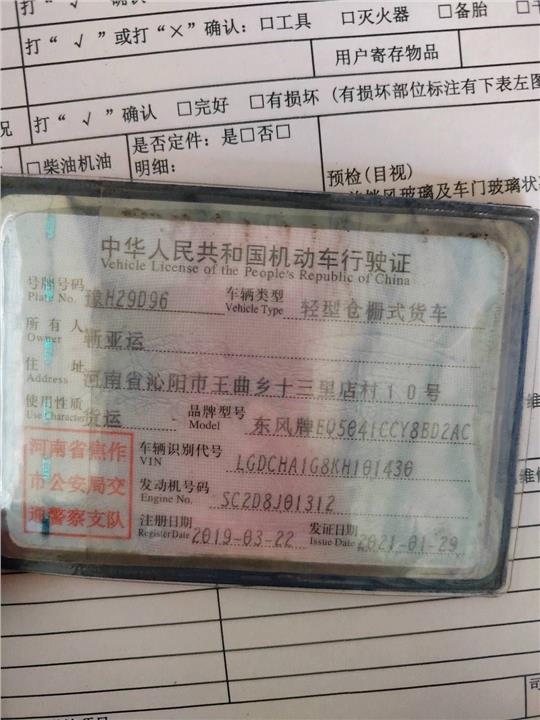 打“ √ ”或打“×”确认：□工具 □灭火器 □备胎
用户寄存物品
况 打“ √ ”确认 □完好 □有损坏（有损坏部位标注有下表左图
是否定件：是□否□
□柴油机油 明细：
预检(目视)
风玻璃及车门玻璃状
中华人民共和国机动车行驶证
Vehicle License of the People's Republic of China
号牌号码 Plate No. 豫H29D96 车辆类型 Vehicle Type 轻型仓栅式货车
所有人 Owner 靳亚运
住址 Address 河南省沁阳市王曲乡十三里店村10号
使用性质 Use Character 货运 品牌型号 Model 东风牌EQ5041CCY8BD2AC
河南省焦作
市公安局交
通警察支队
车辆识别代号 VIN LGDCHA1G8KH101430
发动机号码 Engine No. SC2D8J01312
注册日期 Register Date 2019-03-22 发证日期 Issue Date 2021-01-29
维
维修
司